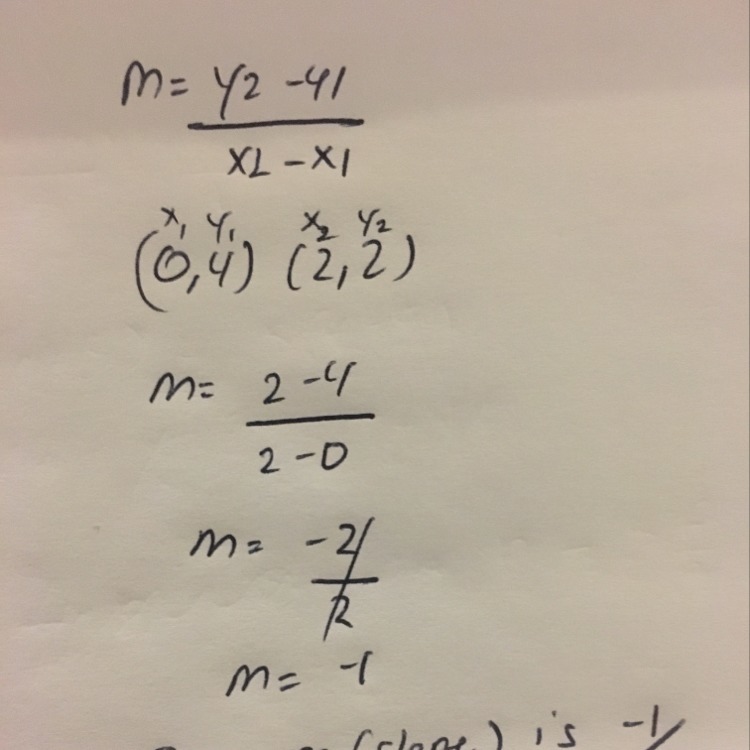 m = y2 - y1
x2 - x1
x1 y1 x2 y2
(0,4) (2,2)
m = 2 - 4
2 - 0
m = -2
2
m = -1
(slope) is -1